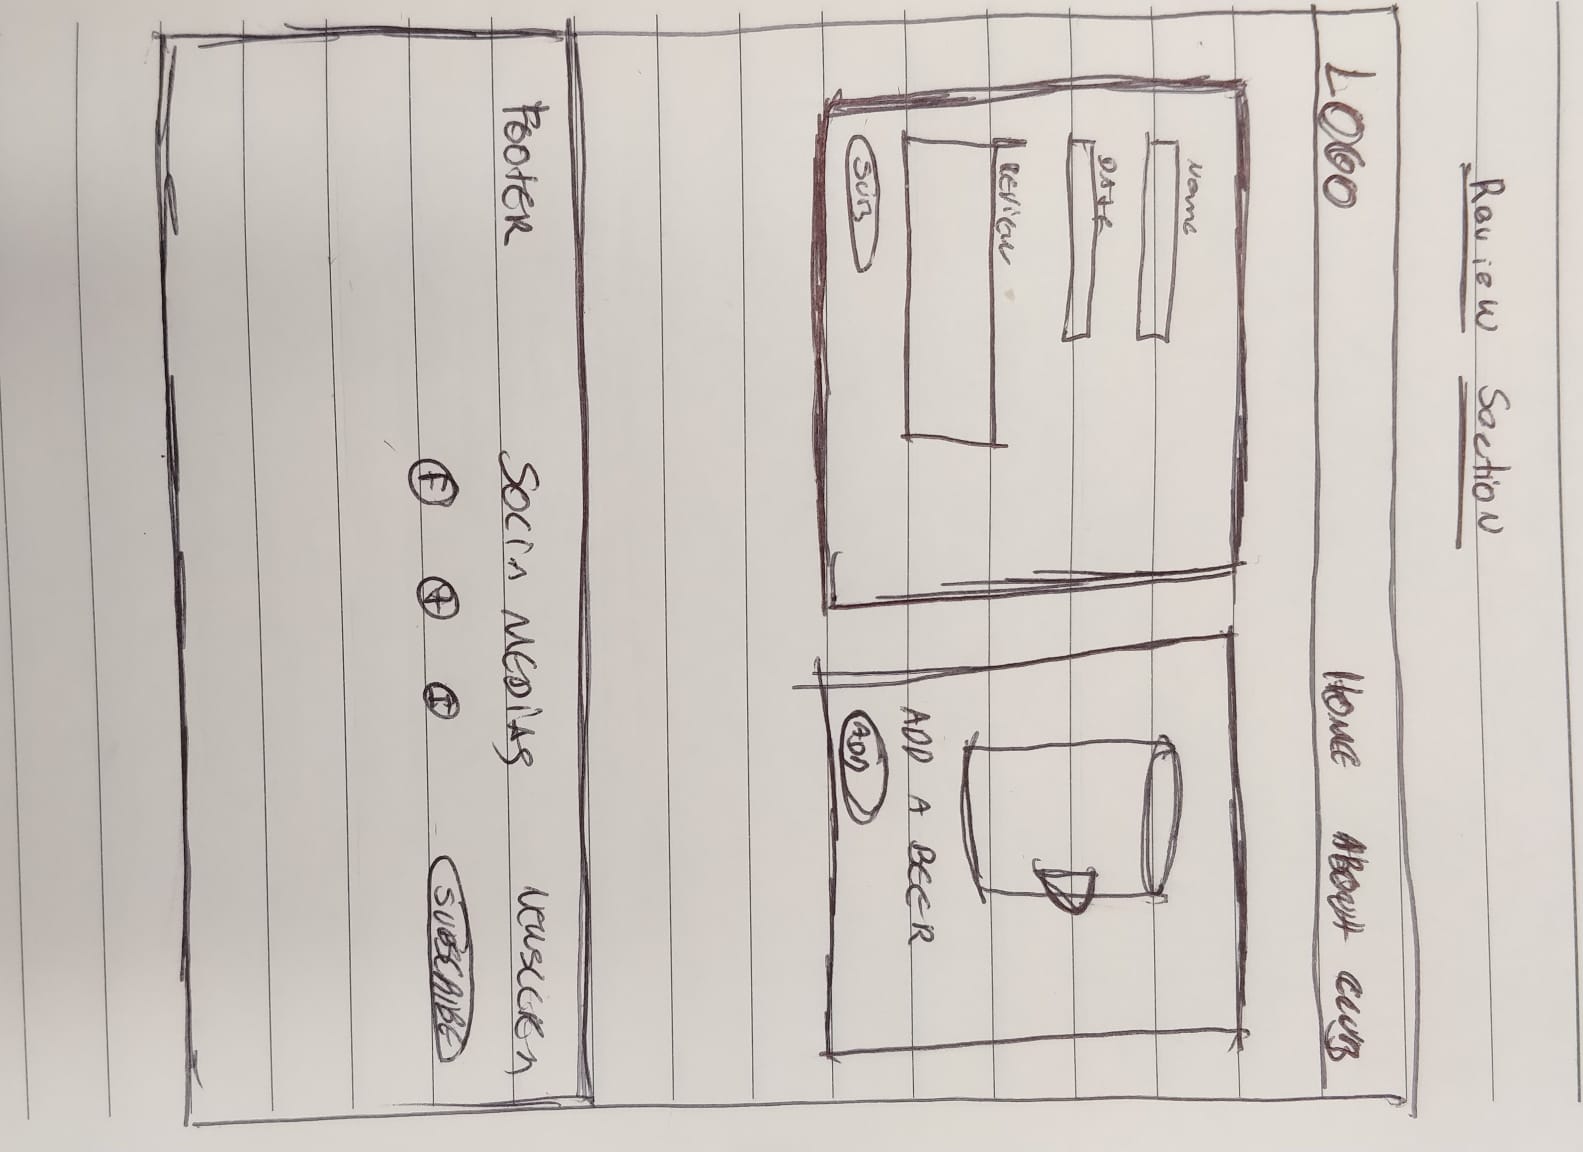 Review Section
LOGO HOME ABOUT CLUB
Name
DATE
REVIEW
SUB
ADD A BEER
ADD
FOOTER SOCIA MEDIAS
F I SUBSCRIBE